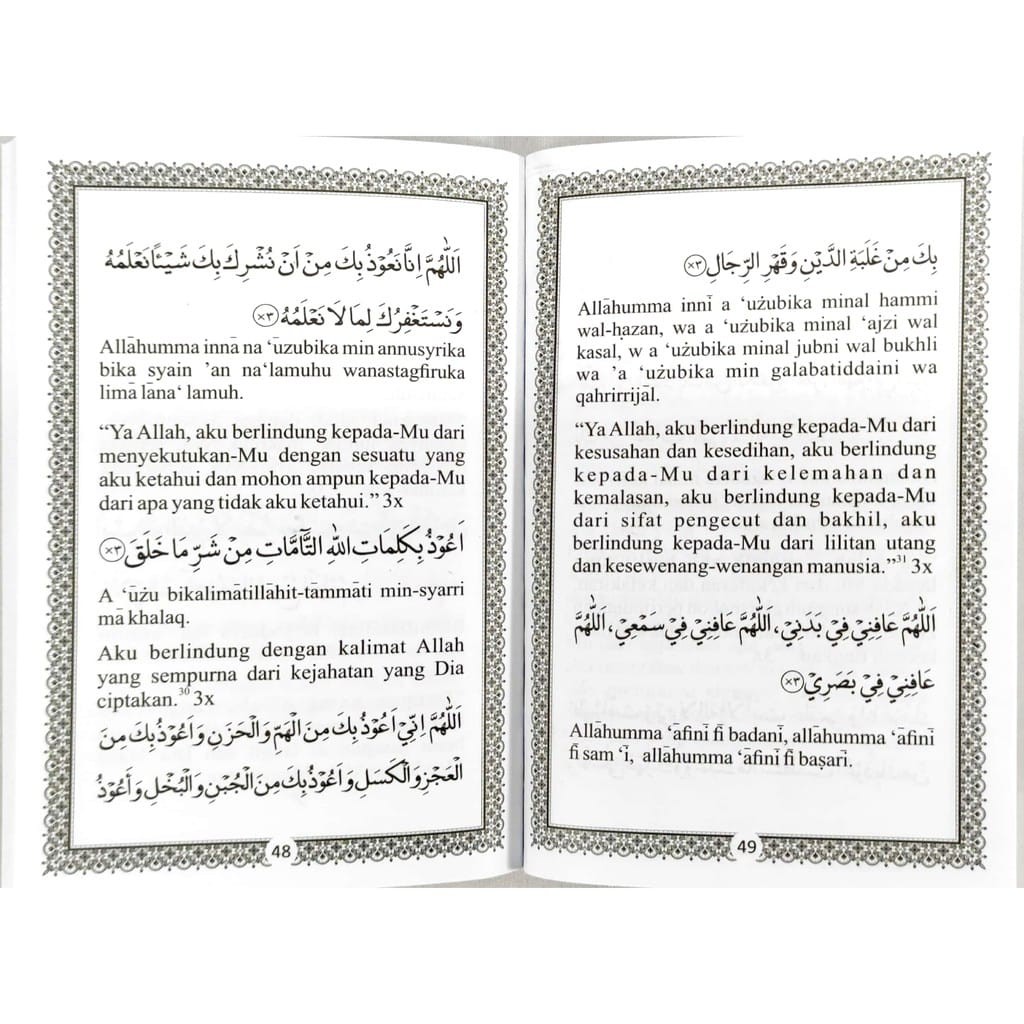 اَللّٰهُمَّ اِنَّا نَعُوْذُ بِكَ مِنْ اَنْ نُشْرِكَ بِكَ شَيْئًا نَعْلَمُهُ
وَنَسْتَغْفِرُكَ لِمَا لَا نَعْلَمُهُ (×٣)
Allāhumma innā na ‘ūzubika min annusyrika
bika syain ’an na‘lamuhu wanastagfiruka
limā lāna‘ lamuh.
“Ya Allah, aku berlindung kepada-Mu dari
menyekutukan-Mu dengan sesuatu yang
aku ketahui dan mohon ampun kepada-Mu
dari apa yang tidak aku ketahui.” 3x
اَعُوْذُ بِكَلِمَاتِ اللهِ التَّآمَّاتِ مِنْ شَرِّ مَا خَلَقَ (×٣)
A ‘ūżu bikalimātillāhit-tāmmāti min-syarri
mā khalaq.
Aku berlindung dengan kalimat Allah
yang sempurna dari kejahatan yang Dia
ciptakan.³⁰ 3x
اَللّٰهُمَّ اِنِّيْ اَعُوْذُ بِكَ مِنَ الْهَمِّ وَالْحَزَنِ وَاَعُوْذُ بِكَ مِنَ
الْعَجْزِ وَالْكَسَلِ وَاَعُوْذُ بِكَ مِنَ الْجُبْنِ وَالْبُخْلِ وَاَعُوْذُ
48
بِكَ مِنْ غَلَبَةِ الدَّيْنِ وَقَهْرِ الرِّجَالِ (×٣)
Allāhumma innī a ‘użubika minal hammi
wal-ḥazan, wa a ‘użubika minal ‘ajzi wal
kasal, w a ‘użubika minal jubni wal bukhli
wa ’a ‘użubika min galabatiddaini wa
qahrirrijāl.
“Ya Allah, aku berlindung kepada-Mu dari
kesusahan dan kesedihan, aku berlindung
kepada-Mu dari kelemahan dan
kemalasan, aku berlindung kepada-Mu
dari sifat pengecut dan bakhil, aku
berlindung kepada-Mu dari lilitan utang
dan kesewenang-wenangan manusia.”³¹ 3x
اَللّٰهُمَّ عَافِنِيْ فِيْ بَدَنِيْ، اَللّٰهُمَّ عَافِنِيْ فِيْ سَمْعِيْ، اَللّٰهُمَّ
عَافِنِيْ فِيْ بَصَرِيْ (×٣)
Allāhumma ‘āfinī fī badanī, allāhumma ‘āfinī
fī sam ‘ī, allāhumma ‘āfinī fī baṣarī.
49